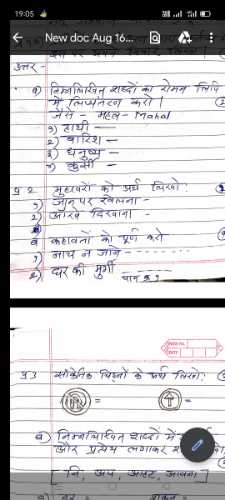 19:05
New doc Aug 16...
उत्तर -
a) निम्नलिखित शब्दों का रोमन लिपि
में लिप्यन्तरण करो।
जैसे - महल - Mahal
1) हाथी -
2) बारिश -
3) धनुष्य -
4) कुर्सी -
प्र 2 मुहावरों को अर्थ लिखो:
1) जान पर खेलना -
2) आंख दिखाना -
ब कहावतों को पूर्ण करो
1) नाच न जाने -------
2) घर की मुर्गी -------
PAGE NO.
DATE
प्र3 सांकेतिक चिन्हों के अर्थ लिखो:
=
=
a) निम्नलिखित शब्दों में
और प्रत्यय लगाकर
[नि, अप, आहट, आवना]